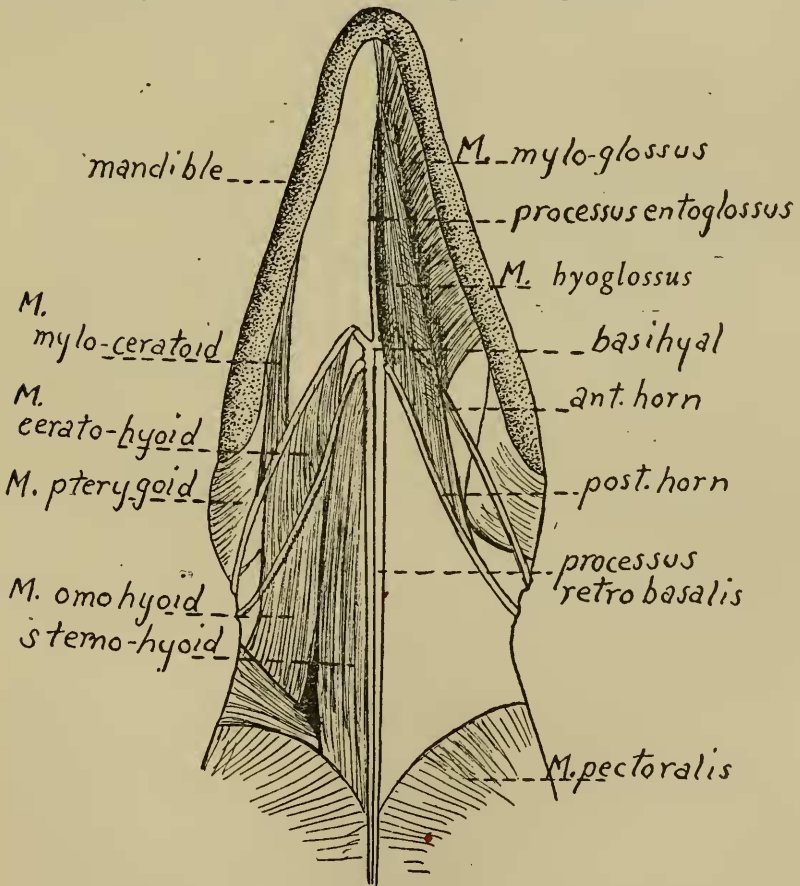 mandible
M.
mylo-ceratoid
M.
cerato-hyoid
M. pterygoid
M. omohyoid
sterno-hyoid
M. mylo-glossus
processus entoglossus
M. hyoglossus
basihyal
ant. horn
post. horn
processus
retrobasalis
M. pectoralis